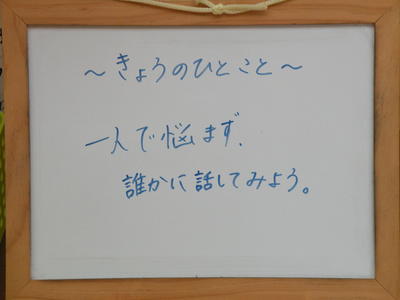 ～きょうのひとこと～
一人で悩まず、
誰かに話してみよう。